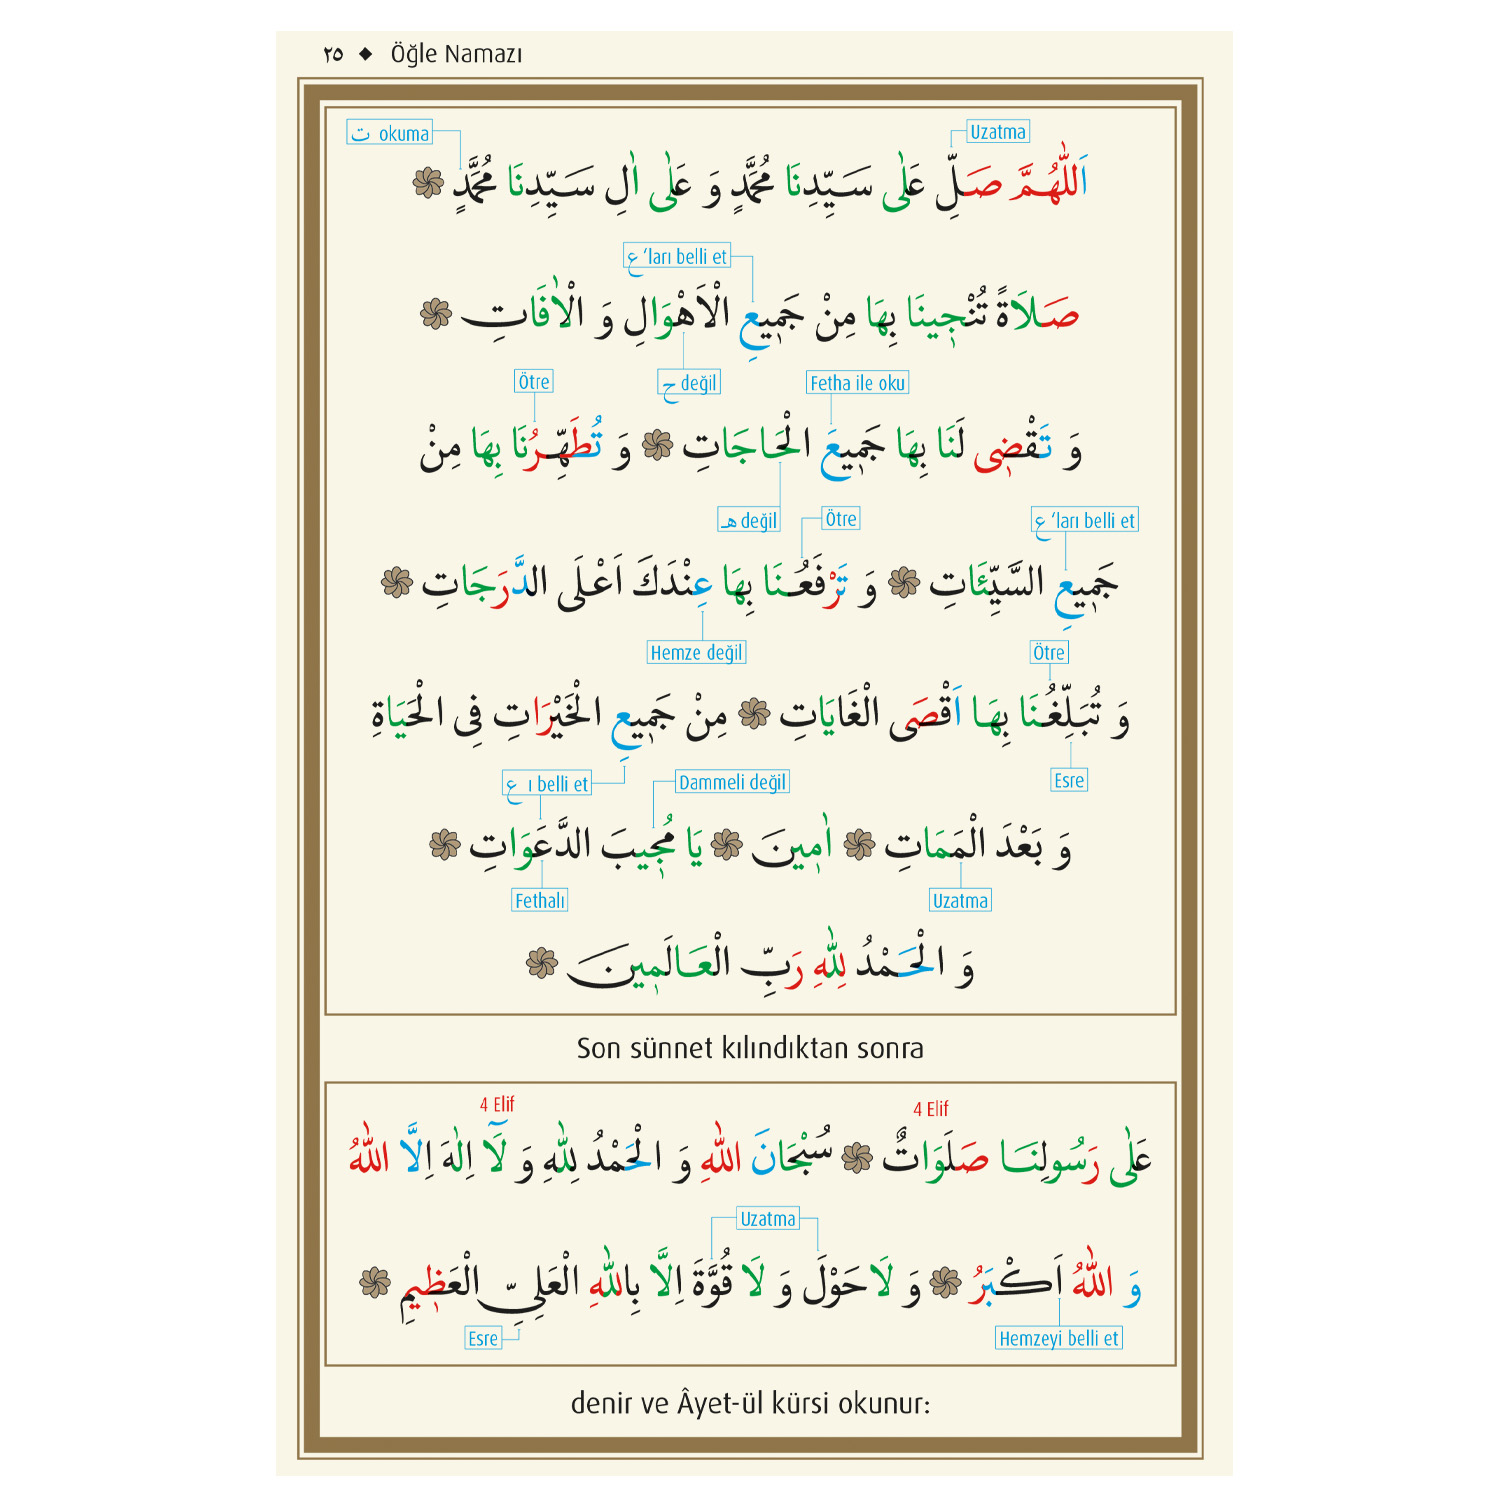 ٢٥ ◆ Öğle Namazı
ت okuma
Uzatma
اَللّٰهُمَّ صَلِّ عَلٰى سَيِّدِنَا مُحَمَّدٍ وَ عَلٰى اٰلِ سَيِّدِنَا مُحَمَّدٍ
ع ‘ları belli et
صَلَاةً تُنْجِينَا بِهَا مِنْ جَمِيعِ الْاَهْوَالِ وَ الْاٰفَاتِ
Ötre
ح değil
Fetha ile oku
وَ تَقْضِى لَنَا بِهَا جَمِيعَ الْحَاجَاتِ وَ تُطَهِّرُنَا بِهَا مِنْ
هـ değil
Ötre
ع ‘ları belli et
جَمِيعِ السَّيِّئَاتِ وَ تَرْفَعُنَا بِهَا عِنْدَكَ اَعْلَى الدَّرَجَاتِ
Hemze değil
Ötre
وَ تُبَلِّغُنَا بِهَا اَقْصَى الْغَايَاتِ مِنْ جَمِيعِ الْخَيْرَاتِ فِى الْحَيَاةِ
ع ı belli et
Dammeli değil
Esre
وَ بَعْدَ الْمَمَاتِ اٰمِينَ يَا مُجِيبَ الدَّعَوَاتِ
Fethalı
Uzatma
وَ الْحَمْدُ لِلّٰهِ رَبِّ الْعَالَمِينَ
Son sünnet kılındıktan sonra
4 Elif
4 Elif
عَلٰى رَسُولِنَا صَلَوَاتٌ سُبْحَانَ اللّٰهِ وَ الْحَمْدُ لِلّٰهِ وَ لَٓا اِلٰهَ اِلَّا اللّٰهُ
Uzatma
وَ اللّٰهُ اَكْبَرُ وَ لَا حَوْلَ وَ لَا قُوَّةَ اِلَّا بِاللّٰهِ الْعَلِىِّ الْعَظِيمِ
Esre
Hemzeyi belli et
denir ve Âyet-ül kürsi okunur: